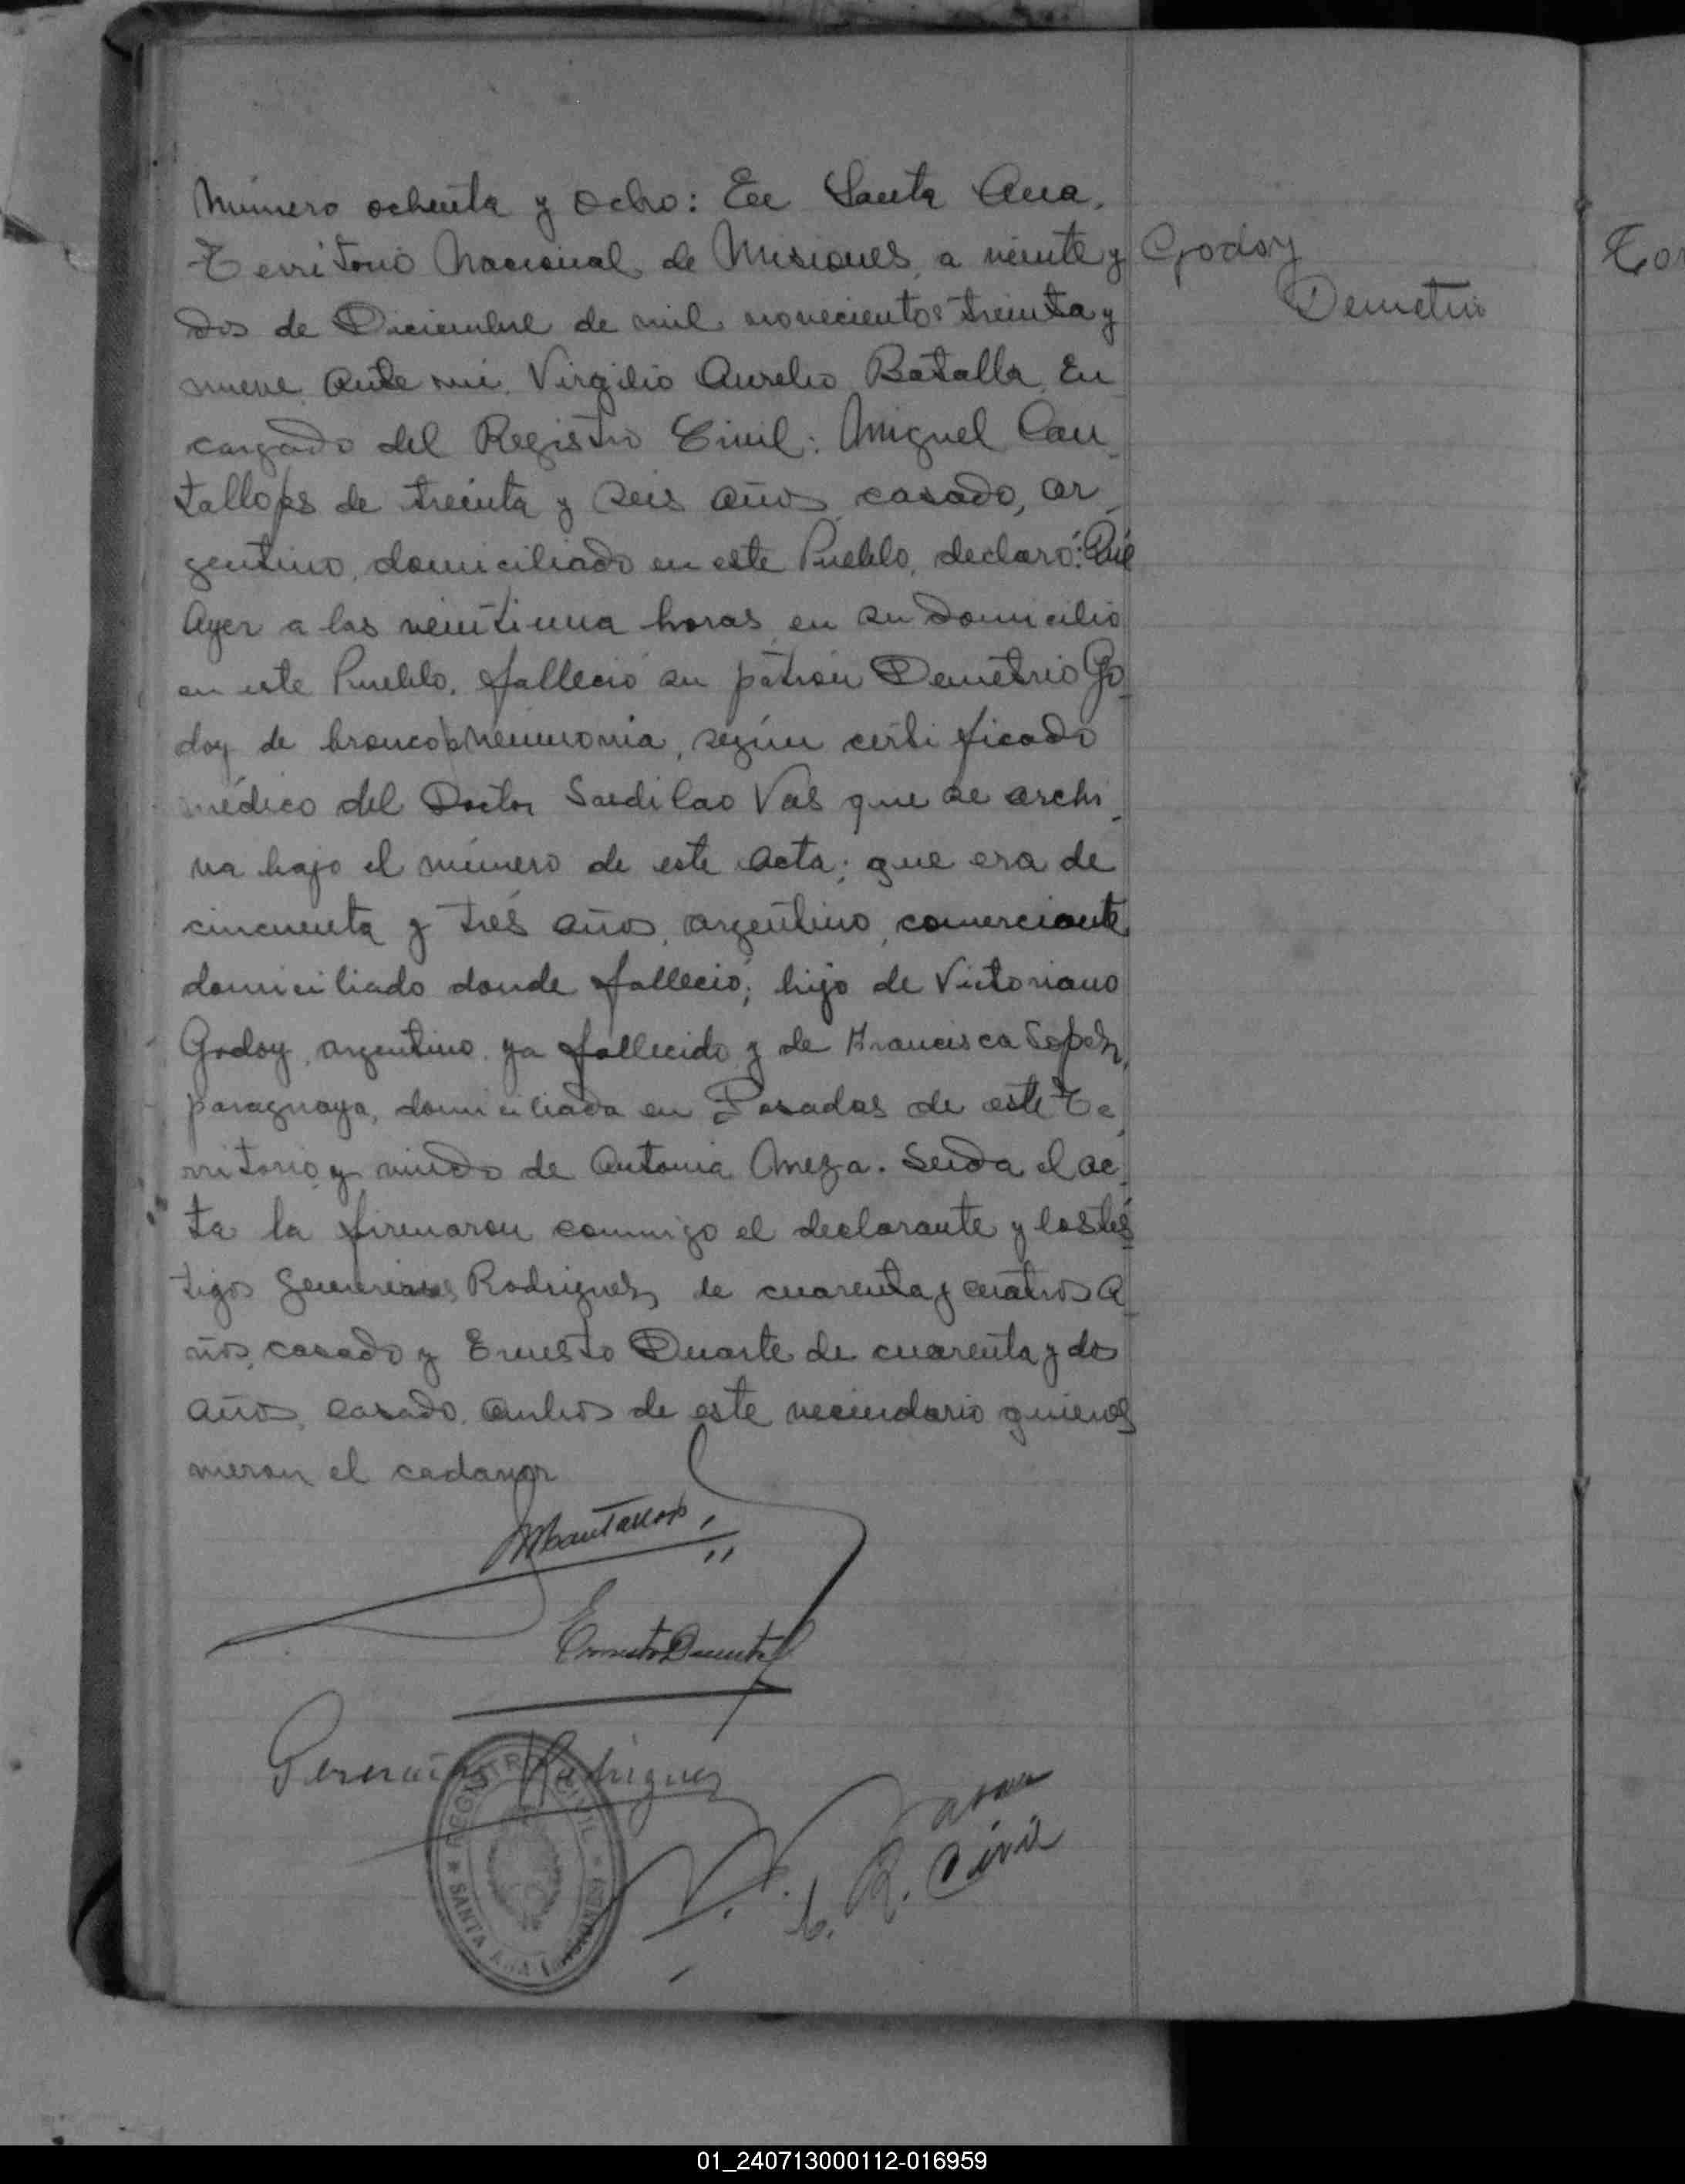 Número ochenta y ocho: En Santa Ana,
Territorio Nacional de Misiones, a veinte y
dos de Diciembre de mil novecientos treinta y
nueve, ante mi, Virgilio Aurelio Batalla, En
cargado del Registro Civil: Miguel Can
tallops de treinta y seis años, casado, ar
gentino, domiciliado en este Pueblo, declaró: Que
Ayer a las veintiuna horas, en su domicilio
en este Pueblo, falleció su patrón Demetrio Go
doy de bronconeumonia, según certificado
médico del Doctor Vas que se archi
va bajo el número de este acta; que era de
cincuenta y tres años, argentino, comerciante
domiciliado donde falleció; hijo de Victoriano
Godoy, argentino, ya fallecido y de Francisca Lopez,
paraguaya, domiciliada en Posadas de este Te
rritorio y viudo de Antonia Meza. Leida el ac
ta la firmaron conmigo el declarante y los tes
tigos Rodriguez, de cuarenta y cuatros a
ños, casado y Ernesto Duarte de cuarenta y dos
años, casado, ambos de este vecindario quienes
vieron el cadaver
Godoy
Demetrio
MCantallops
Ernesto Duarte
Rodriguez
REGISTRO CIVIL
SANTA ANA (MISIONES)
R. Civil
01_240713000112-016959